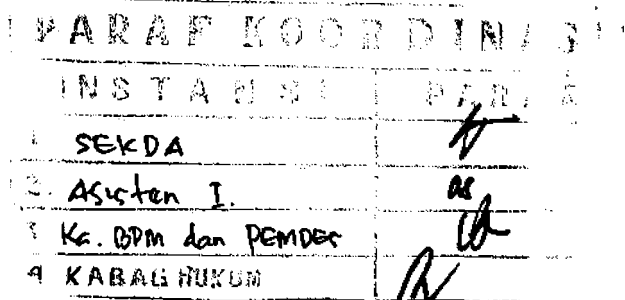 PARAF KOORDINASI
INSTANSI PARAF
1 SEKDA
2. Asisten I.
3 Ka. BPM dan PEMDES
4 KABAG HUKUM